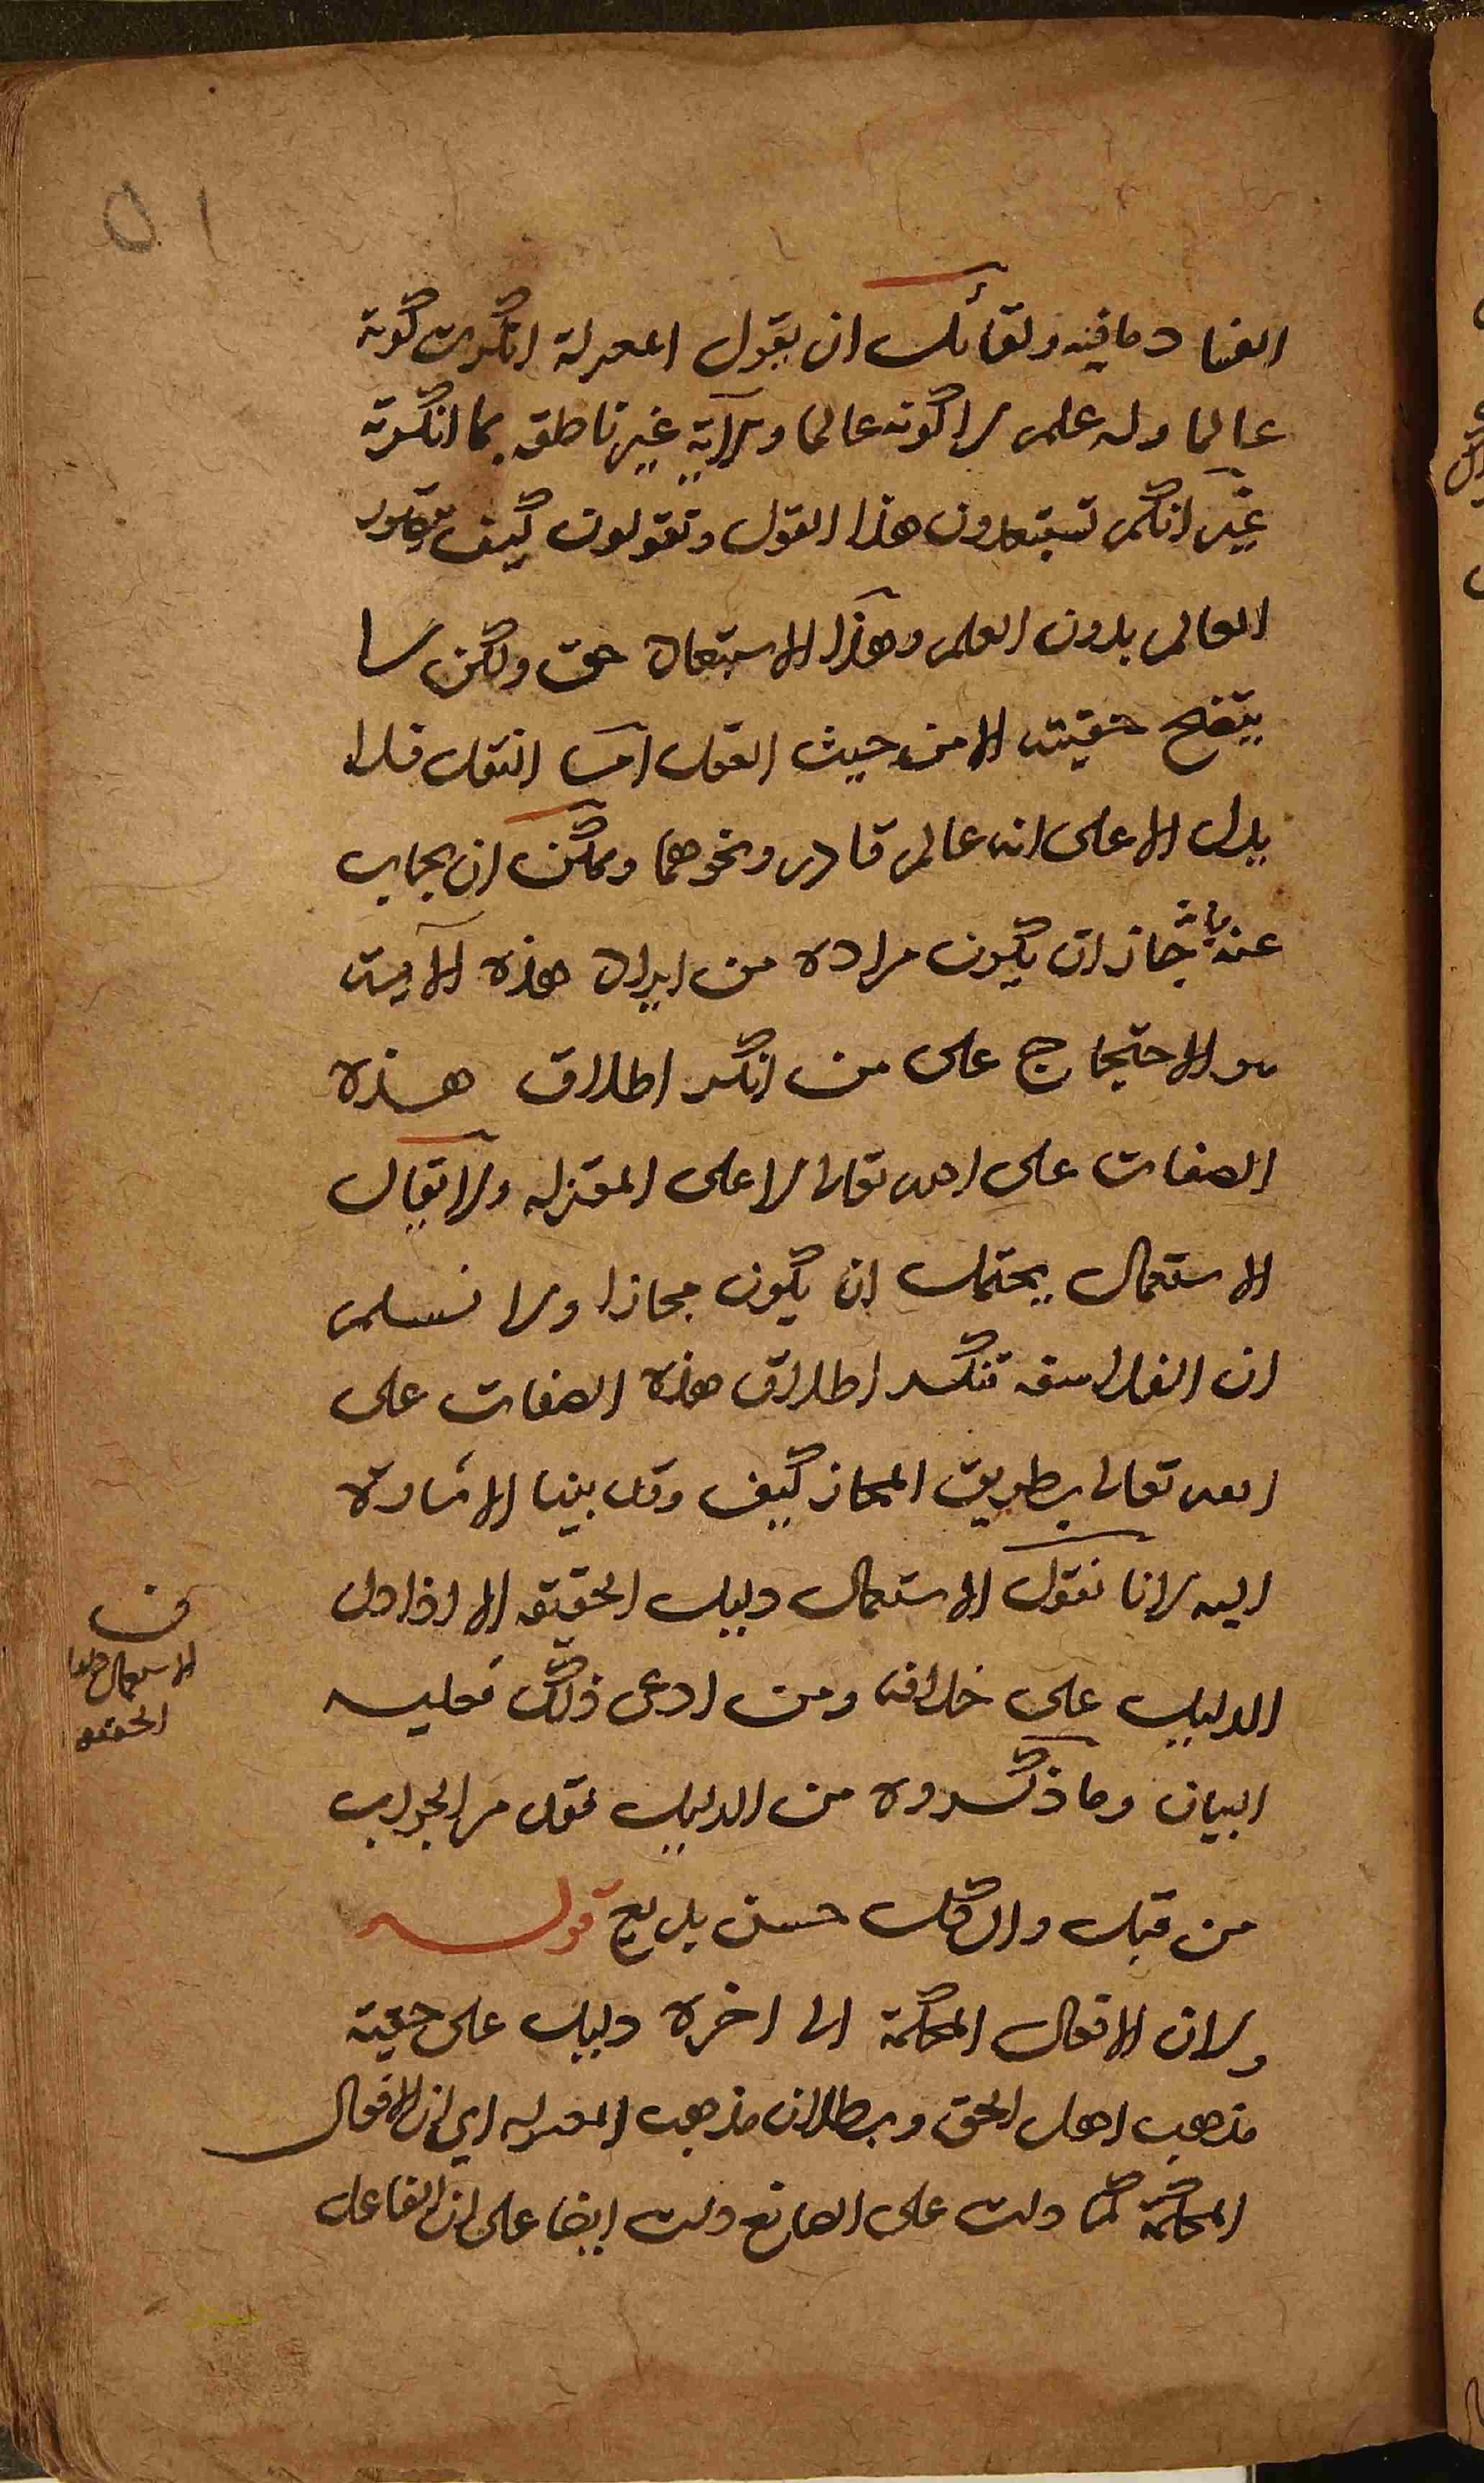 ٥١
الفساد ما فيه ولقائل ان يقول المعتزلة انكرت كونه
عالما وله علم لا كونه عالما والآية غير ناطقة بما انكرته
غير انكم تستبعدون هذا القول وتقولون كيف يتصور
العالم بدون العلم وهذا الاستبعاد حق ولكن لا
يتضح حقيته الا من حيث العقل اما النقل فلا
يدل الا على انه عالم قادر ونحوهما ويمكن ان يجاب
عنه بانه جاز ان يكون مراده من ايراد هذه الآية
هو الاحتجاج على من انكر اطلاق هذه
الصفات على الله تعالى لا على المعتزلة ولا يقال
الاستعمال يحتمل ان يكون مجازا ولا نسلم
ان الفلاسفة تنكر اطلاق هذه الصفات على
الله تعالى بطريق المجاز كيف وقد بينا الاشارة
اليه لانا نقول الاستعمال دليل الحقيقة الا اذا دل
الدليل على خلافه ومن ادعى ذلك فعليه
البيان وما ذكروه من الدليل فقد مر الجواب
من قبل والكل حسن بديع قوله
ولان الافعال المحكمة الى اخره دليل على حقية
مذهب اهل الحق وبطلان مذهب المعتزلة اي لان الافعال
المحكمة كما دلت على الصانع دلت ايضا على ان الفاعل
ف
الاستعمال
الحقيقة